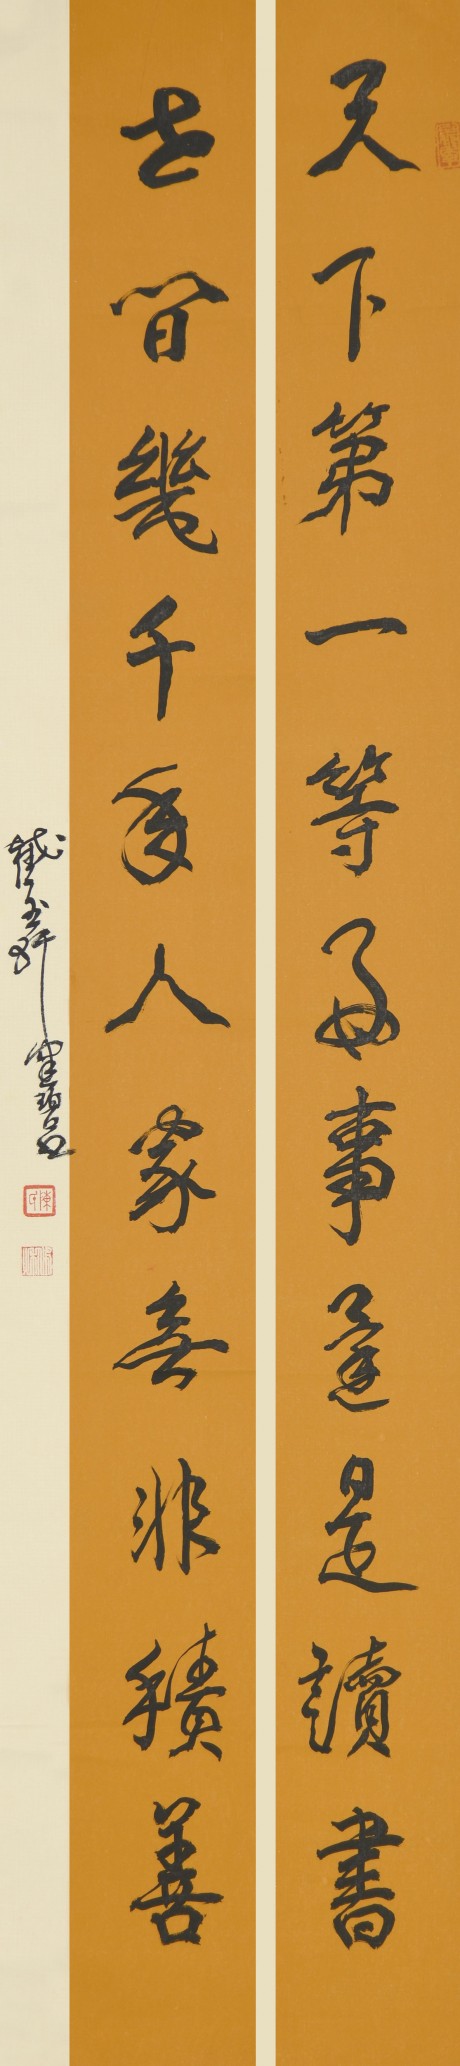 天下第一等好事還是讀書
世間幾千年人家無非積善